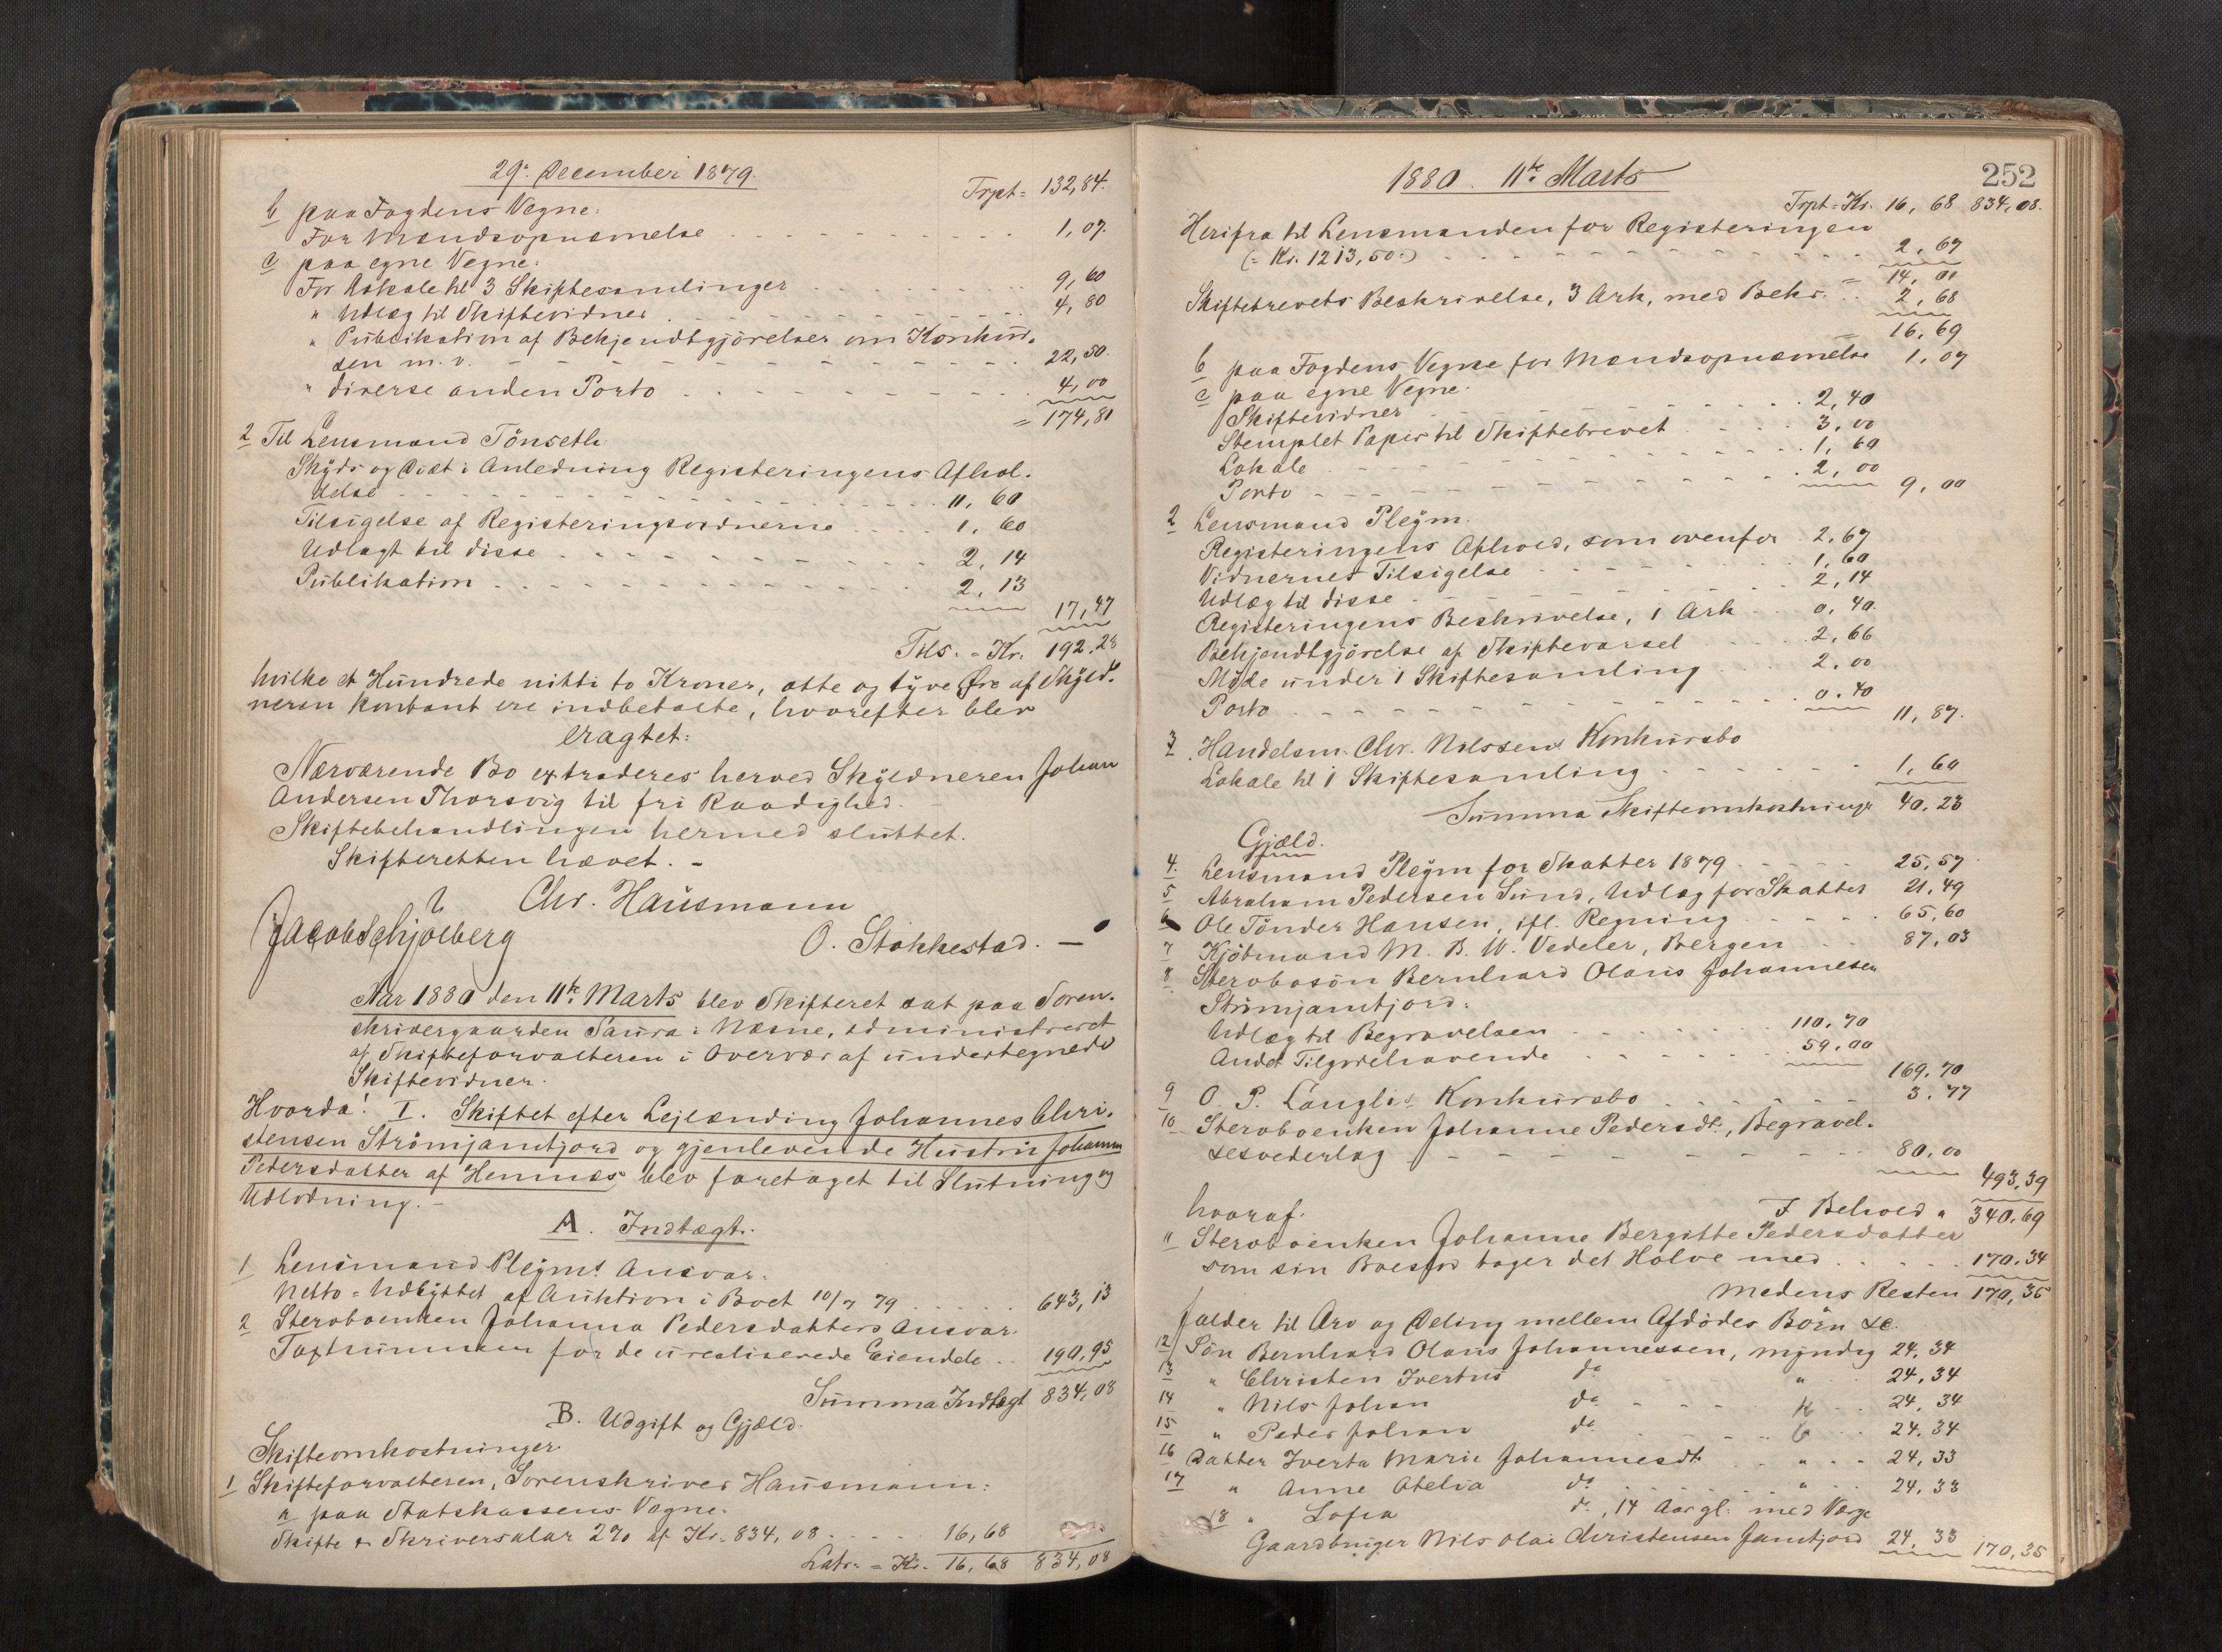 29de December 1879.
Trpt = 132,84.
b paa Fogdens Vegne:
For Mandsopnævnelse 1,07.
c paa egne Vegne:
For Lokale til 3 Skiftesamlinger 9,60
" Udlæg til Skiftevidner 4,80
" Publikation af Bekjendtgjörelser om Konkur-
sen m. v. 22,50.
" diverse anden Porto 4,00
= 174,81
2 Til Lensmand Tönseth:
Skyds og Diæt i Anledning Registeringens Afhol-
delse 11,60
Tilsigelse af Registeringsvidnerne 1,60
Udlagt til disse 2,14
Publikation 2,13
17,47
Tils. = Kr. 192,28
hvilke et Hundrede nitti to Kroner, otte og tyve Öre af Skyld-
neren kontant ere indbetalte, hvorefter blev
eragtet:
Nærværende Bo extraderes herved Skyldneren Johan
Andersen Thorsvig til fri Raadighed. –
Skiftebehandlingen hermed sluttet.
Skifteretten hævet. –
Chr. Hausmann
Jacob Schjölberg
O. Stokkestad. –
Aar 1880 den 11te Marts blev Skifteret sat paa Soren-
skrivergaarden Saura i Næsne, administreret
af Skifteforvalteren i Overvær af undertegnede
Skiftevidner.
Hvorda! I. Skiftet efter Lejlænding Johannes Chri-
stensen Strömjamtjord og gjenlevende Hustru Johanna
Pedersdatter af Hemnæs blev foretaget til Slutning og
Udlodning. –
A. Indtægt.
1 Lensmand Pleyms Ansvar:
Netto-Udbyttet af Auktion i Boet 10/7 79 643,13
2 Sterboenken Johanna Pedersdatters Ansvar.
Taxtsummen for de urealiserede Eiendele 190,95
Summa Indtægt 834,08
B. Udgift og Gjæld.
Skifteomkostninger
1 Skifteforvalteren, Sorenskriver Hausmann:
a paa Statskassens Vegne.
Skifte & Skriversalar 2% af Kr. 834,08 16,68
Latr. = Kr. 16,68 834,08
1880. 11te Marts
252
Trpt = Kr. 16,68 834,08.
Herifra til Lensmanden for Registeringen
(= Kr. 1213,50:) 2,67
= 14,01
Skiftebrevets Beskrivelse, 3 Ark, med Bekr. 2,68
= 16,69
b paa Fogdens Vegne for Mandsopnævnelse 1,07
c paa egne Vegne.
Skiftevidner 2,40
Stemplet Papir til Skiftebrevet 3,00
Lokale 1,60
Porto 2,00
9,00
2 Lensmand Pleym.
Registeringens Afhold, som ovenfor 2,67
Vidnernes Tilsigelse 1,60
Udlæg til disse 2,14
Registeringens Beskrivelse, 1 Ark 0,40.
Bekjendtgjörelse af Skiftevarsel 2,66
Möde under 1 Skiftesamling 2,00
Porto 0,40
11,87.
3 Handelsm. Chr. Nilssens Konkursbo
Lokale til 1 Skiftesamling 1,60
Summa Skifteomkostninger 40,23
Gjæld.
4. Lensmand Pleym for Skatter 1879 25,57
5 Abraham Pedersen Sund, Udlæg for Skatter 21,49
6 Ole Tönder Hansen, ifl. Regning 65,60
7 Kjöbmand M. B. W. Vedeler, Bergen 87,03
8 Sterbosön Bernhard Olaus Johannesen
Strömjamtjord:
Udlæg til Begravelsen 110,70
Andet Tilgodehavende 59,00
169,70
9 O. P. Langlis Konkursbo 3,77
10 Sterboenken Johanne Pedersdt., Begravel-
sesvederlag 80,00
493,39
I Behold " 340,69
hvoraf.
11 Sterboenken Johanne Bergitte Pedersdatter
som sin Boeslod tager det Halve med 170,34
Medens Resten 170,35
falder til Arv og Deling mellem Afdödes Börn &c.
12 Sön Bernhard Olaus Johannessen, myndig 24,34
13 " Christen Ivertus do " 24,34
14 " Nils Johan do " 24,34
15 " Peder Johan do " 24,34
16 Datter Iverta Marie Johannesdt. " 24,33
17 " Anne Otelia do " 24,33
18 " Lofia do, 14 Aar gl. med Værge
Gaardbruger Nils Olai Christensen Jamtjord 24,33
170,35